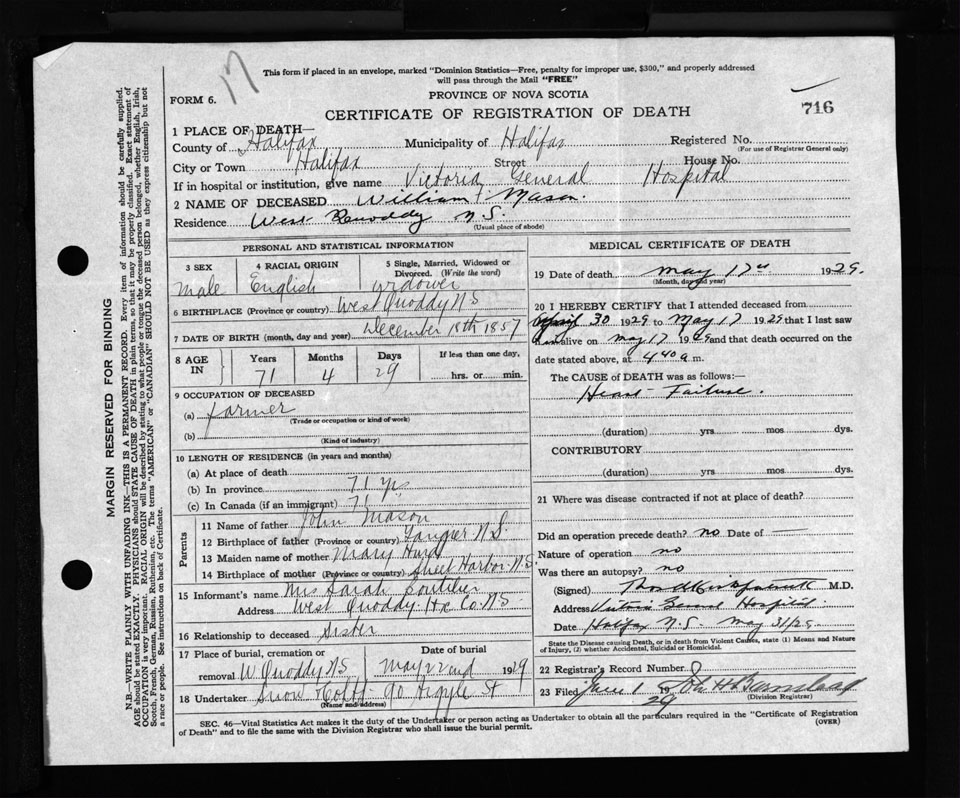 17
This form if placed in an envelope, marked "Dominion Statistics—Free, penalty for improper use, $300," and properly addressed
will pass through the Mail "FREE"
FORM 6.
PROVINCE OF NOVA SCOTIA
716
CERTIFICATE OF REGISTRATION OF DEATH
1 PLACE OF DEATH—
County of Halifax Municipality of Halifax Registered No.
(For use of Registrar General only)
City or Town Halifax Street House No.
If in hospital or institution, give name Victoria General Hospital
2 NAME OF DECEASED William Mason.
Residence West N.S.
(Usual place of abode)
PERSONAL AND STATISTICAL INFORMATION
3 SEX 4 RACIAL ORIGIN 5 Single, Married, Widowed or
Divorced. (Write the word)
Male English widower
6 BIRTHPLACE (Province or country) West Quoddy NS
7 DATE OF BIRTH (month, day and year) December 18th 1857
8 AGE IN Years Months Days If less than one day,
71 4 29 hrs. or min.
9 OCCUPATION OF DECEASED
(a) Farmer
(Trade or occupation or kind of work)
(b)
(Kind of industry)
10 LENGTH OF RESIDENCE (in years and months)
(a) At place of death
(b) In province 71 yrs
(c) In Canada (if an immigrant) 71
Parents
11 Name of father John Mason
12 Birthplace of father (Province or country) Tangier N.S.
13 Maiden name of mother Mary
14 Birthplace of mother (Province or country) Sheet Harbor N.S
15 Informant's name Mrs Sarah Boutilier
Address West Quoddy Hx Co. NS
16 Relationship to deceased Sister
17 Place of burial, cremation or Date of burial
removal W Quoddy NS May 22nd 1929
18 Undertaker Snow 90 Argyle St
(Name and address)
MEDICAL CERTIFICATE OF DEATH
19 Date of death May 17th 1929.
(Month, day and year)
20 I HEREBY CERTIFY that I attended deceased from
April 30 1929 to May 17 1929 that I last saw
him alive on May 17 1929 and that death occurred on the
date stated above, at 4 40 a.m.
The CAUSE of DEATH was as follows:—
Heart Failure.
(duration) yrs mos dys.
CONTRIBUTORY
(duration) yrs mos dys.
21 Where was disease contracted if not at place of death?
Did an operation precede death? no Date of —
Nature of operation no
Was there an autopsy? no
(Signed) M.D.
Address Victoria General Hospital
Date Halifax N.S. May 31/29
State the Disease causing Death, or in death from Violent Causes, state (1) Means and Nature
of Injury, (2) whether Accidental, Suicidal or Homicidal.
22 Registrar's Record Number
23 Filed June 1 1929 John H Barnstead
(Division Registrar)
SEC. 46—Vital Statistics Act makes it the duty of the Undertaker or person acting as Undertaker to obtain all the particulars required in the "Certificate of Registration
of Death" and to file the same with the Division Registrar who shall issue the burial permit.
(OVER)
MARGIN RESERVED FOR BINDING
N.B.—WRITE PLAINLY WITH UNFADING INK—THIS IS A PERMANENT RECORD. Every item of information should be carefully supplied.
AGE should be stated EXACTLY. PHYSICIANS should STATE CAUSE OF DEATH in plain terms, so that it may be properly classified. Exact statement of
OCCUPATION is very important. RACIAL ORIGIN will be described by stating to what people or tongue the deceased person belonged, whether English, Irish,
Scotch, French, German, Russian, Ruthenian, etc. The terms "AMERICAN" or "CANADIAN" SHOULD NOT BE USED as they express citizenship but not
a race or people. See instructions on back of Certificate.